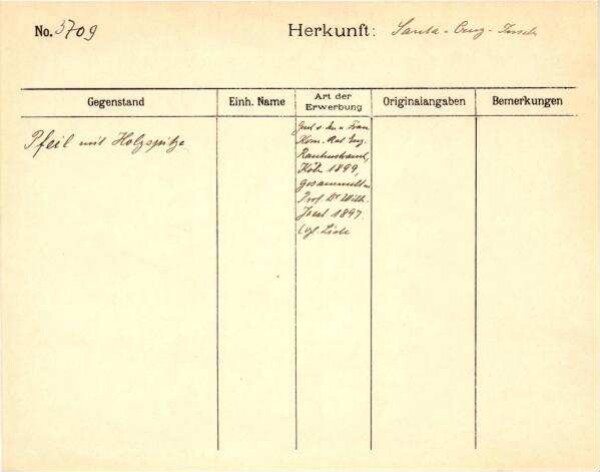 No. 3709
Herkunft: Santa-Cruz-Inseln
Gegenstand
Einh. Name
Art der
Erwerbung
Originalangaben
Bemerkungen
Pfeil mit Holzspitze
Frau
Kom. Rat Eug.
Rautenstrauch,
Köln 1899,
gesammelt v.
Prof. Dr Wilh.
Joest 1897.
vgl. Liste